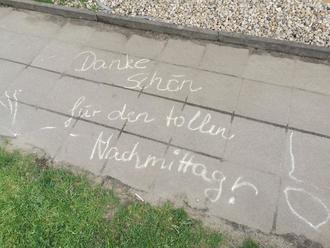 Danke
Schön
für den tollen
Nachmittag!